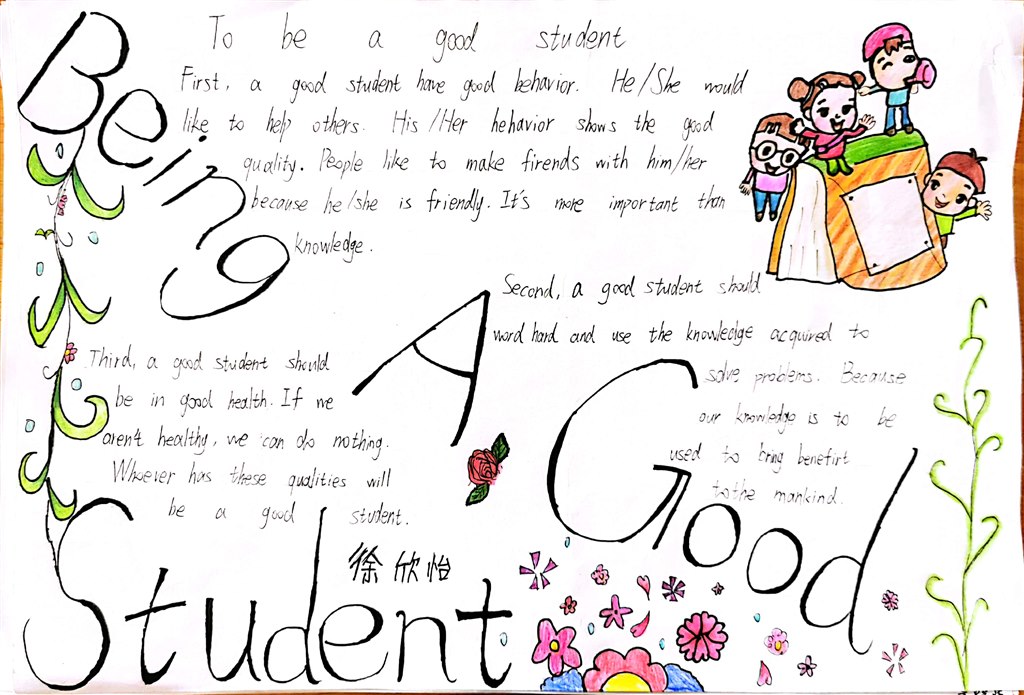 Being
A
Good
Student
To be a good student
First, a good student have good behavior. He/She would
like to help others. His/Her hehavior shows the good
quality. People like to make firends with him/her
because he/she is friendly. It's more important than
knowledge.
Second, a good student should
word hard and use the knowledge acquired to
solve problems. Because
our knowledge is to be
used to bring benefirt
to the mankind.
Third, a good student should
be in good health. If we
aren't healthy, we can do nothing.
Whoever has these qualities will
be a good student.
徐欣怡